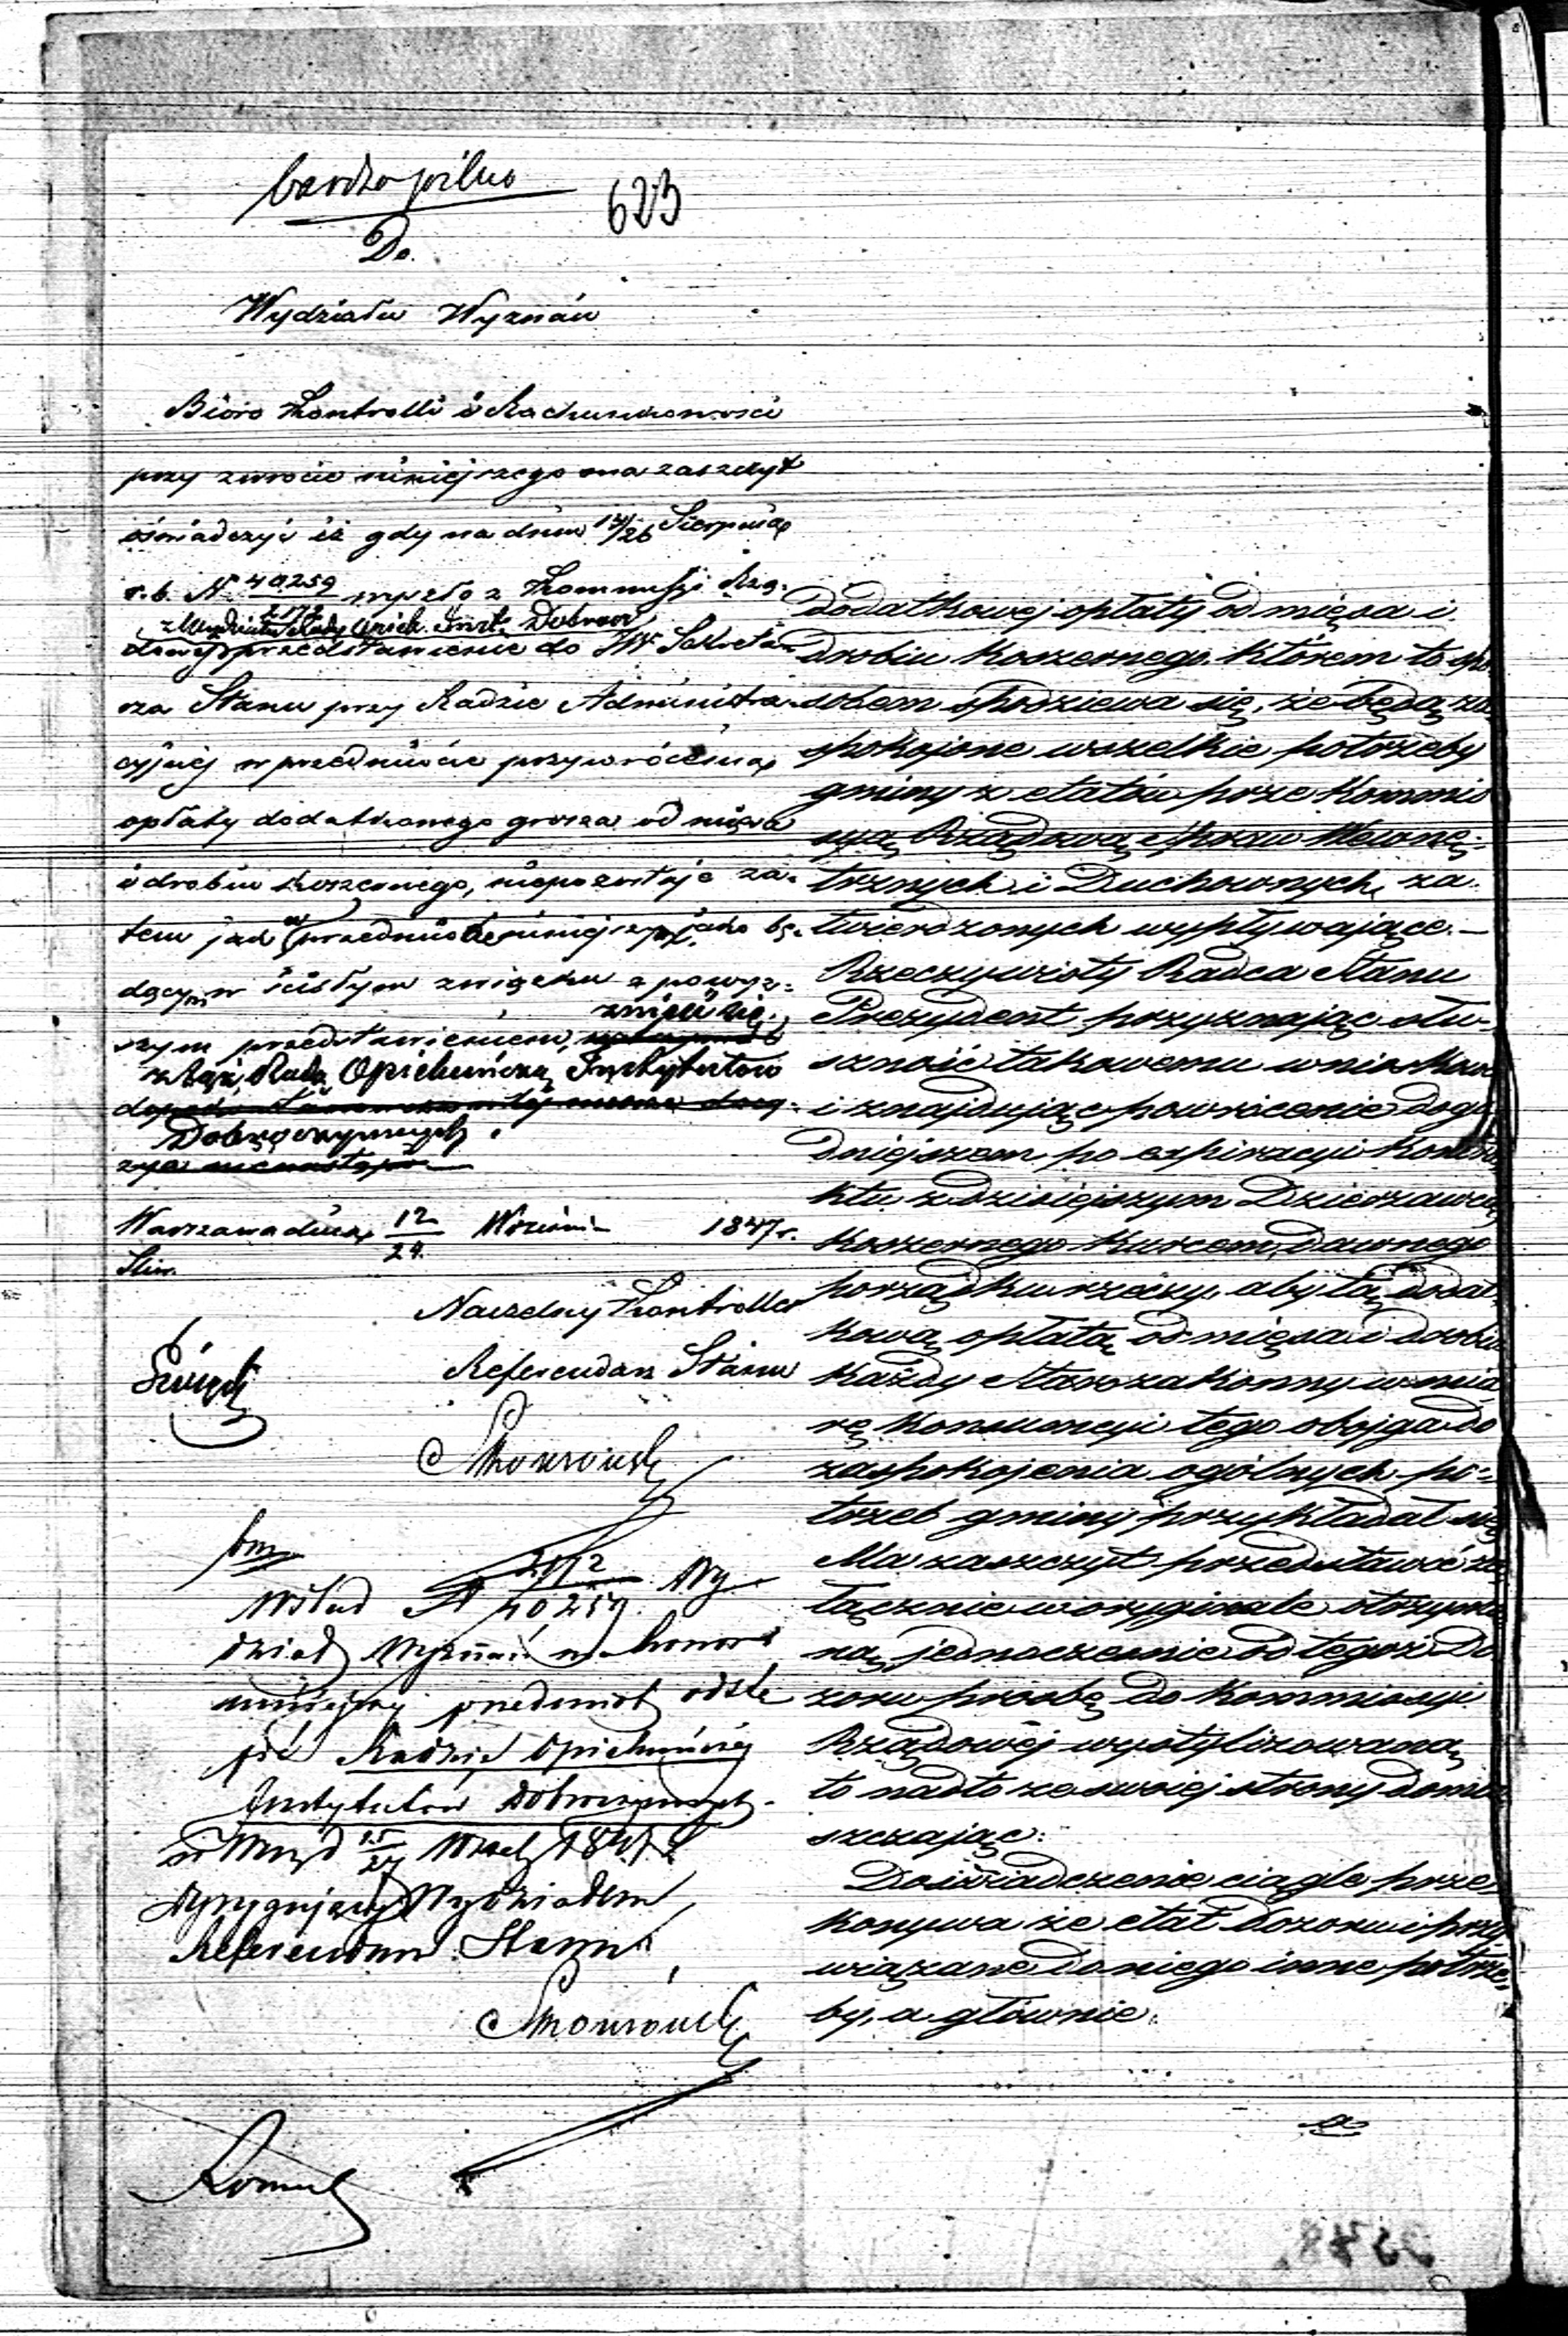 bardzo pilno
623
Do
Wydziału Wyznań
Bióro Kontrolli i Rachunkowości
przy zwrocie niniejszego ma zaszczyt
oświadczyć iż gdy na dniu 14/26 Sierpnia
r. b. N. 40259 wyszło z Kommissji Rzą-
2172
z Wydziału Rady Opiek. Inst. Dobrocz.
dowej przedstawienie do JW Sekreta-
rza Stanu przy Radzie Administra-
cyjnej w przedmiocie przywrócenia
opłaty dodatkowego grosza od mięsa
i drobiu koszernego, niepozostaje za-
tem jak w przedmiocie niniejszym jako bę-
dącym w ścisłym związku z powyż-
szym przedstawieniem, znieść się
z tąż Radą Opiekuńczą Instytutów
Dobroczynnych.
Warszawa dnia 12/24 Wrześni 1847 r.
Naczelny Kontroller
Referendarz Stanu
Wślad N 2172/40259 Wy
dział Wyznań ma honor
niniejszy przedmiot odstą
pić Radzie Opiekuńczej
Instytutów Dobroczynnych.
w Warsz d 15/27 Wrześ 1847 r
Dyrygujący Wydziałem
Referendarz Stanu
dodatkowej opłaty od mięsa i
drobiu koszernego. Którem to spo-
sobem spodziewa się, że będą za
spokojone wszelkie potrzeby
gminy z etatów prze Kommis
syą Rządową Spraw Wewnę-
trznych i Duchownych, za-
twierdzonych wypływające.—
Rzeczywisty Radca Stanu
Prezydent przyznając słu-
szność takowemu wnioskowi
i znajdując powrócenie dogo
dniejszem po expiracyi kontra
ktu z dzisiejszym Dzierżawcą
koszernego Kurcem, dawnego
porządku rzeczy, aby tą dodat
kową opłatą od mięsa i drobiu
każdy Starozakonny w mia
rę konsumcyi tego obojga do
zaspokojenia ogólnych po-
trzeb gminy przykładał się
Ma zaszczyt przedstawić za
łącznie w oryginale otrzyma
ną jednocześnie od tegoż Do
zoru prośbę do Kommissyi
Rządowéj wystylizowaną
to nadto ze swojej strony domie
szczając:
Doświadczenie ciągle prze
konywa że etat Dozoru i przy
wiązane do niego inne potrze-
by, a głównie.